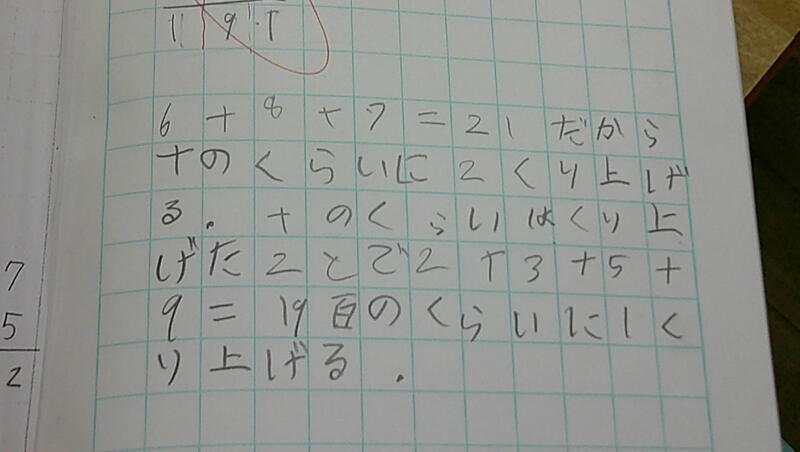 11 9 1
6+8+7=21だから
十のくらいに2くり上げ
る.十のくらいはくり上
げた2とで2+3+5+
9=19百のくらいに1く
り上げる.
7
5
2